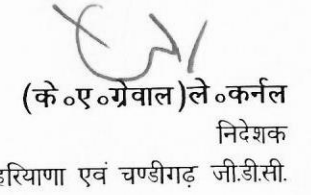 (के ०ए ०ग्रेवाल)ले ०कर्नल
निदेशक
हरियाणा एवं चण्डीगढ़ जी.डी.सी.